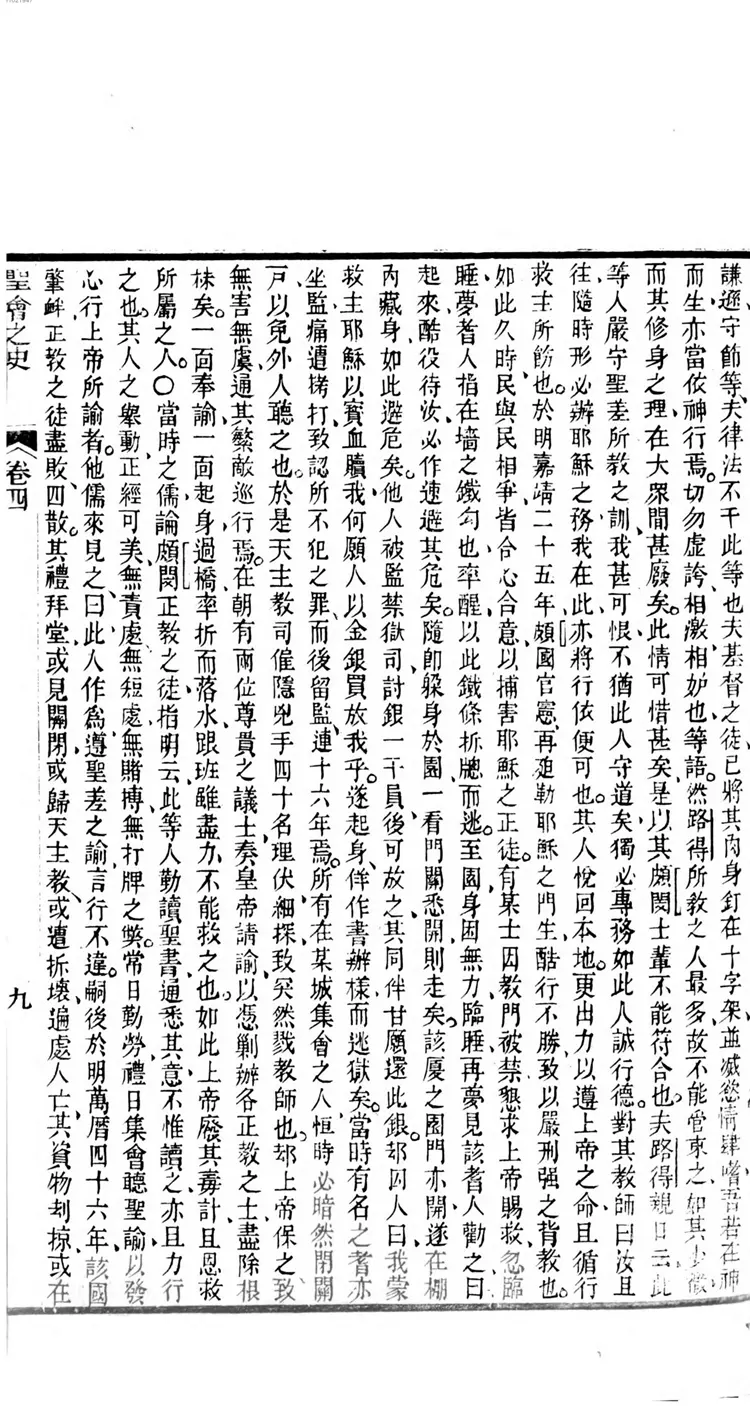 謙遜、守節等、夫律法不干此等也、夫基督之徒、已將其肉身釘在十字架、並滅慾情肆嗜、吾若在神
而生、亦當依神行焉。切勿虛誇、相激、相妒也、等語。然路得所教之人最多、故不能管束之、如其少微
而其修身之理、在大眾間甚廢矣。此情可惜甚矣、是以其頗閔士輩不能符合也。夫路得親日云、此
等人嚴守聖差所教之訓、我甚可恨不猶此人守道矣、獨必專務如此人誠行德。對其教師曰、汝且
往、隨時形必辦耶穌之務、我在此、亦將行依便可也。其人悅回本地。更出力以遵上帝之命、且循行
救主所飭也。於明嘉靖二十五年、頗國官憲、再廹勒耶穌之門生、酷行不勝、致以嚴刑强之背教也。
如此久時、民與民相爭、皆合心合意、以捕害耶穌之正徒。有某士因教門被禁、懇求上帝賜救、忽臨
睡、夢耆人指在墻之鐵勾也、率醒、以此鐵條折牕而逃。至園身困無力、臨睡、再夢見該耆人勸之曰、
起來、酷役待汝、必作速避其危矣。隨卽躲身於園、一看門關悉開、則走矣。該廈之園門亦開、遂在棚
內藏身、如此避危矣。他人被監禁、獄司討銀一千員、後可放之、其同伴甘願還此銀、却囚人曰、我蒙
救主耶穌以寳血贖我、何願人以金銀買放我乎。遂起身、佯作書辦樣而逃獄矣。當時有名之耆、亦
坐監、痛遭拷打、致認所不犯之罪、而後留監、連十六年焉。所有在某城集會之人、恒時必暗然閉關
戸、以免外人聽之也。於是天主教司僱隱兇手四十名、理伏細探、致突然戮教師也、却上帝保之、致
無害無虞、通其繁敵巡行焉。在朝有兩位尊貴之議士、奏皇帝請諭、以憑勦辦各正教之士、盡除根
株矣。一面奉諭、一面起身、過橋、率折而落水、跟班雖盡力、不能救之也、如此上帝廢其毒計、且恩救
所屬之人。〇當時之儒、論頗閔正教之徒、指明云、此等人勤讀聖書、通悉其意、不惟讀之、亦且力行
之也。其人之舉動、正經可美、無責處、無短處、無賭博、無打牌之弊。常日勤勞、禮日集會聽聖諭、以發
心行上帝所諭者。他儒來見之曰、此人作爲遵聖差之諭、言行不違。嗣後於明萬曆四十六年、該國
肇衅、正教之徒盡敗、四散。其禮拜堂或見關閉、或歸天主教、或遭折壞、遍處人亡、其貨物刧掠、或在
聖會之史 卷四 九